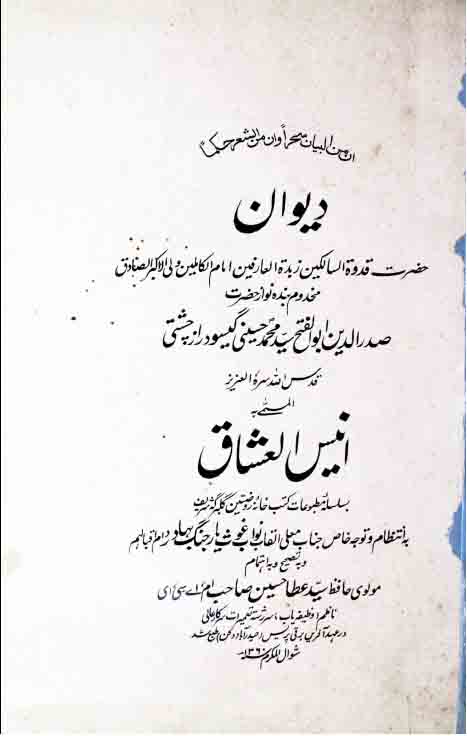 ان من البیان لسحراً وان من الشعر حکما
دیوان
حضرت قدوة السالکین زبدة العارفین امام الکاملین ولی الاکبر الصادق
مخدوم بنده نواز حضرت
صدرالدین ابوالفتح سید محمد حسینی گیسودراز چشتی
قدس الله سره العزیز
المسمی به
انیس العشاق
بسلسله مطبوعات کتب خانه روضتین گلبرگه شریف
به انتظام و توجه خاص جناب معلی القاب نواب غوث یار جنگ بهادر دام اقبالهم
و به تصحیح و به اهتمام
مولوی حافظ سید عطا حسین صاحب ام اے سی ای
ناظم (وظیفه یاب) سررشته تعمیرات سرکار عالی
در عهد آفرین برقی پریس (حیدرآباد دکن) طبع شد
شوال المکرم ۱۳۶۰